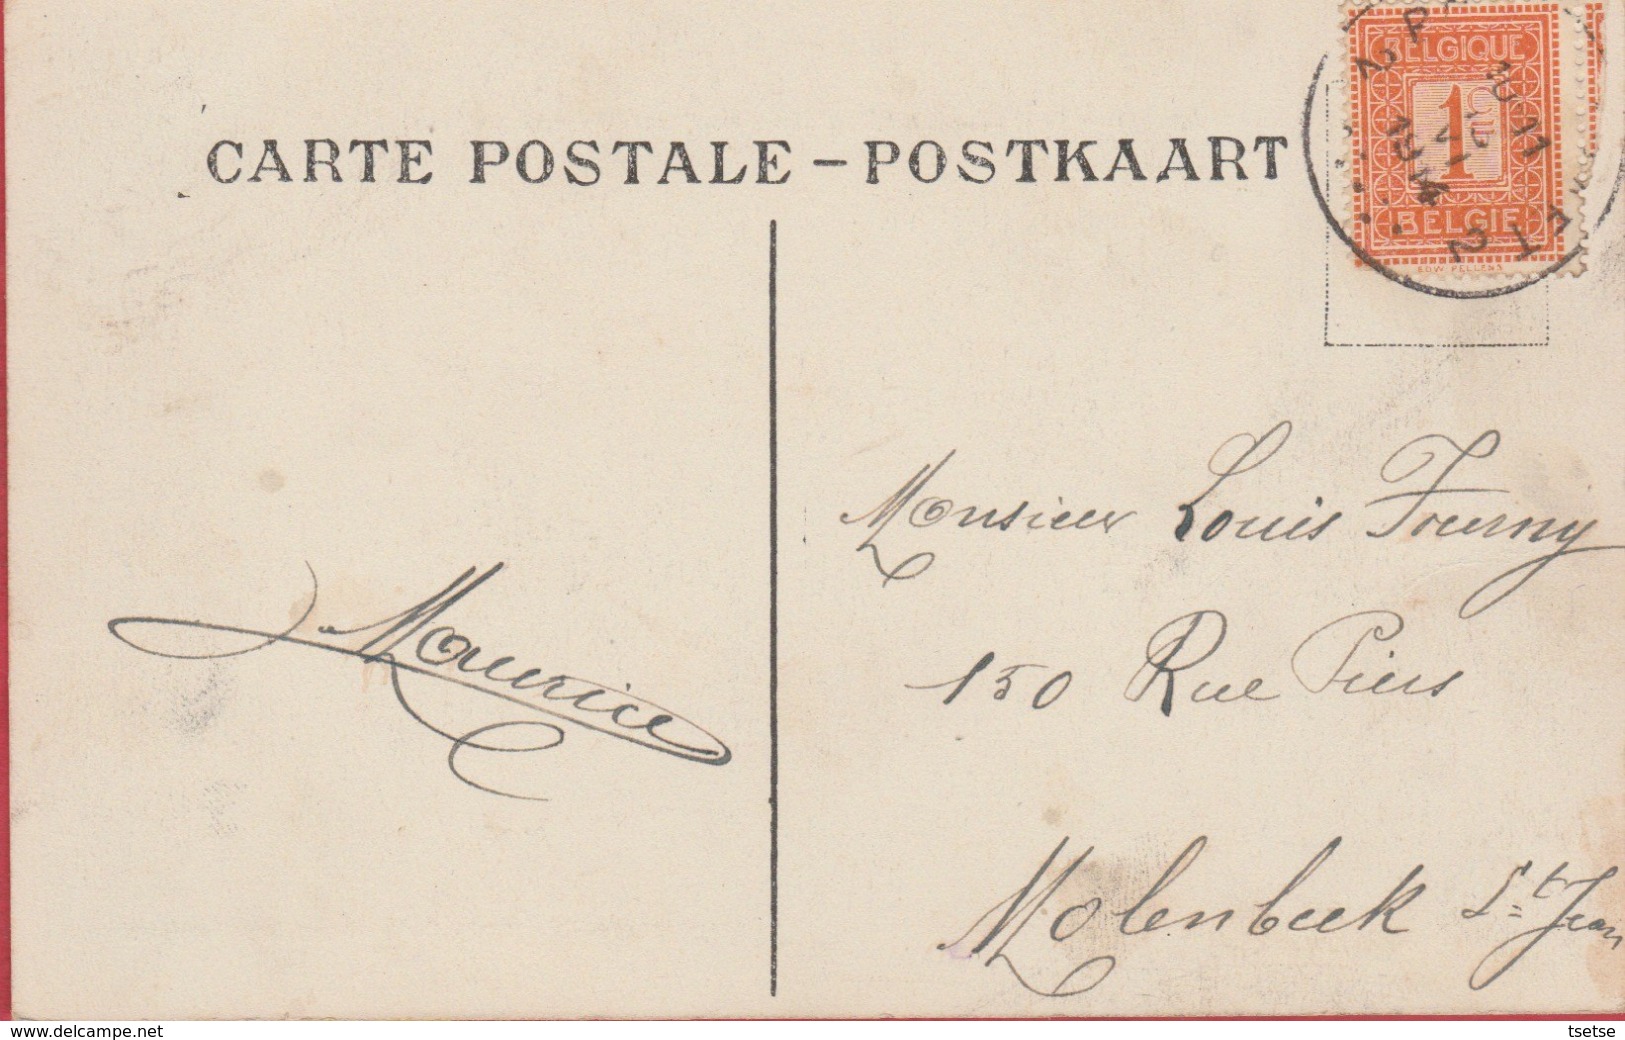 CARTE POSTALE – POSTKAART
BELGIQUE
1c
BELGIE
EDW PELLENS
10-11
VI
1914
Maurice
Monsieur Louis Fourny
150 Rue Piers
Molenbeek St Jean
www.delcampe.net
tsetse